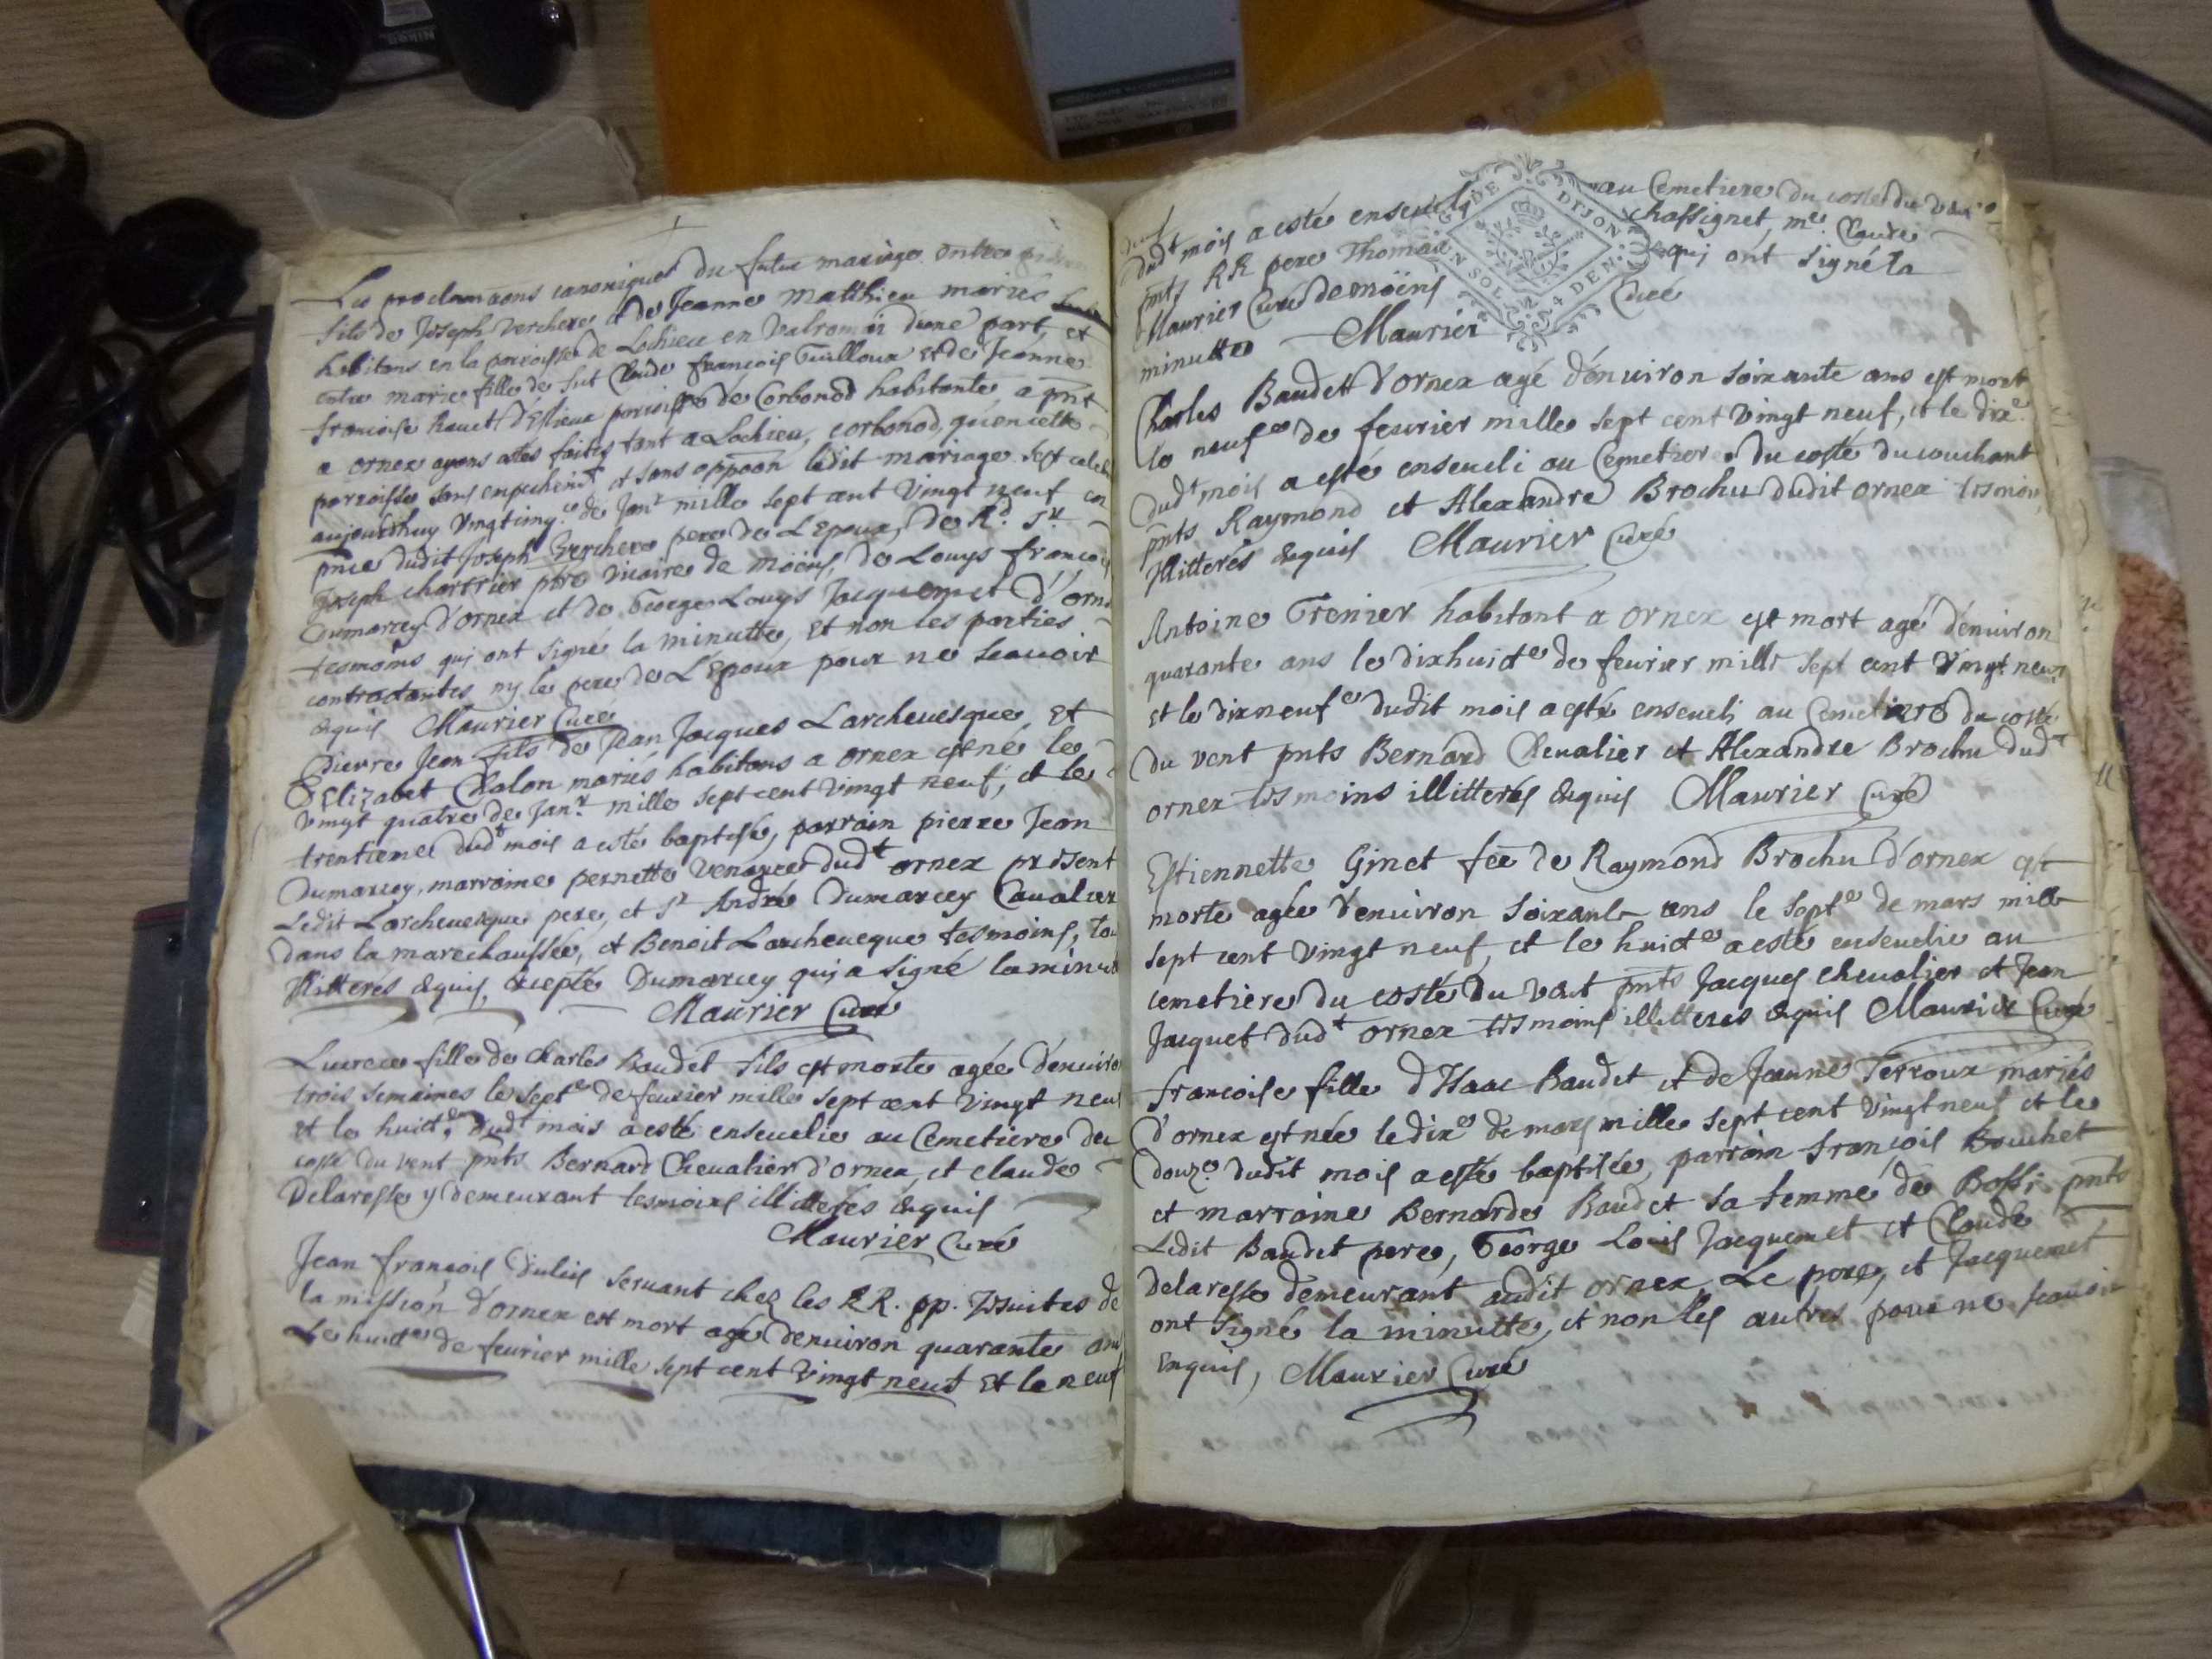 Les proclamaons canoniques du futur mariage entre
fils de Joseph Verchere et de Jeanne Matthieu mariés
habitans en la parroisse de Lochieu en Valromai d'une part, et
entre marie fille de fut Claude françois Guilloux et de Jeanne
françoise huet d'Eslieue parroisse de Corbonod habitante a pnt
a ornex ayans estés faites tant a Lochieu, corbonod, qu'en cette
parroisse sans empechemt et sans oppoon ledit mariage s'est celeb
aujourdhuy Vingtcinqe de Janr mille sept cent Vingt neuf en
pnce dudit Joseph Verchere pere de L'Epoux, de Rd Sr
Joseph chartrier ptre vicaire de moëns, de Louys françois
Dumarcey d'ornex et de George Louys Jacquemet d'orne
tesmoins qui ont signé la minutte, et non les parties
contractantes ny le pere de L'Epoux pour ne scavoir
enquis Maurier Curé
Pierre Jean fils de Jean Jacques Larchevesque, et
d'Elizabet Chalon mariés habitans a ornex est né le
Vingt quatre de Janr mille sept cent Vingt neuf, et le
trentieme dudt mois a esté baptisé, parrain pierre Jean
Dumarcey, marraine pernette Venance dudt ornex present
Ledit Larchevesque pere, et Sr André Dumarcey Cavalier
dans la marechaussée, et Benoit Larcheveque tesmoins, tou
illitterés enquis, excepté Dumarcey qui a signé la minut
Maurier Curé
Lucrece fille de Charles Baudet fils est morte agée d'enviro
trois semaines le septe de fevrier mille sept cent Vingt neuf
et le huicte dudt mois a esté ensevelie au Cemetiere du
costé du vent pnts Bernard Chevalier d'ornex, et claude
Delaresse y demeurant tesmoins illitterés enquis
Maurier Curé
Jean françois Dulcis servant chez les RR. pp. Jesuites de
la mission d'ornex est mort agé d'environ quarante ans
Le huicte de fevrier mille sept cent Vingt neuf et le neuf
dudt mois a esté enseveli au Cemetiere du costé du vent
pnts RR pere Thomas chassignet, me. Claude
Maurier Curé de moëns qui ont signé la
minutte Maurier Curé
DE DIJON
EN SOL 4 DEN
Charles Baudet d'ornex agé d'environ soixante ans est mort
le neufe de fevrier mille sept cent Vingt neuf, et le dixe
dudt mois a esté enseveli au Cemetiere du costé du couchant
pnts Raymond et Alexandre Brochu dudit ornex tesmoins
illitterés enquis Maurier Curé
Antoine Grenier habitant a ornex est mort agé d'environ
quarante ans le dixhuicte de fevrier mille sept cent Vingt neuf
et le dixneufe dudit mois a esté enseveli au Cemetiere du costé
du vent pnts Bernard Chevalier et Alexandre Brochu dudt
ornex tesmoins illitterés enquis Maurier Curé
Estiennette Ginet fee de Raymond Brochu d'ornex est
morte agée d'environ soixante ans le septe de mars mille
sept cent Vingt neuf, et le huicte a esté ensevelie au
cemetiere du costé du vent pnts Jacques chevalier et Jean
Jacquet dudt ornex tesmoins illitteres enquis Maurier Curé
francoise fille d'Isaac Baudet et de Jeanne Terroux mariés
d'ornex est née le dixe de mars mille sept cent Vingt neuf et le
douze dudit mois a esté baptisée, parrain françois Bouchet
et marraine Bernarde Baudet sa femme de Bossi pnts
Ledit Baudet pere, George Louis Jacquemet et Claude
Delaresse demeurant audit ornex, Le pere, et Jacquemet
ont signé la minutte, et non les autres pour ne scavoir
Enquis, Maurier Curé